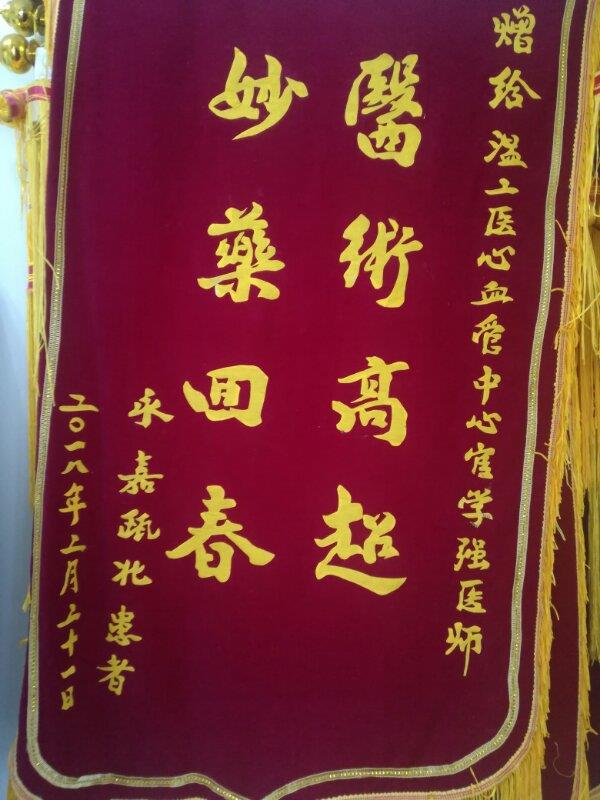 赠给温二医心血管中心官学强医师
醫術高超
妙藥回春
永嘉瓯北患者
二〇一八年二月二十一日